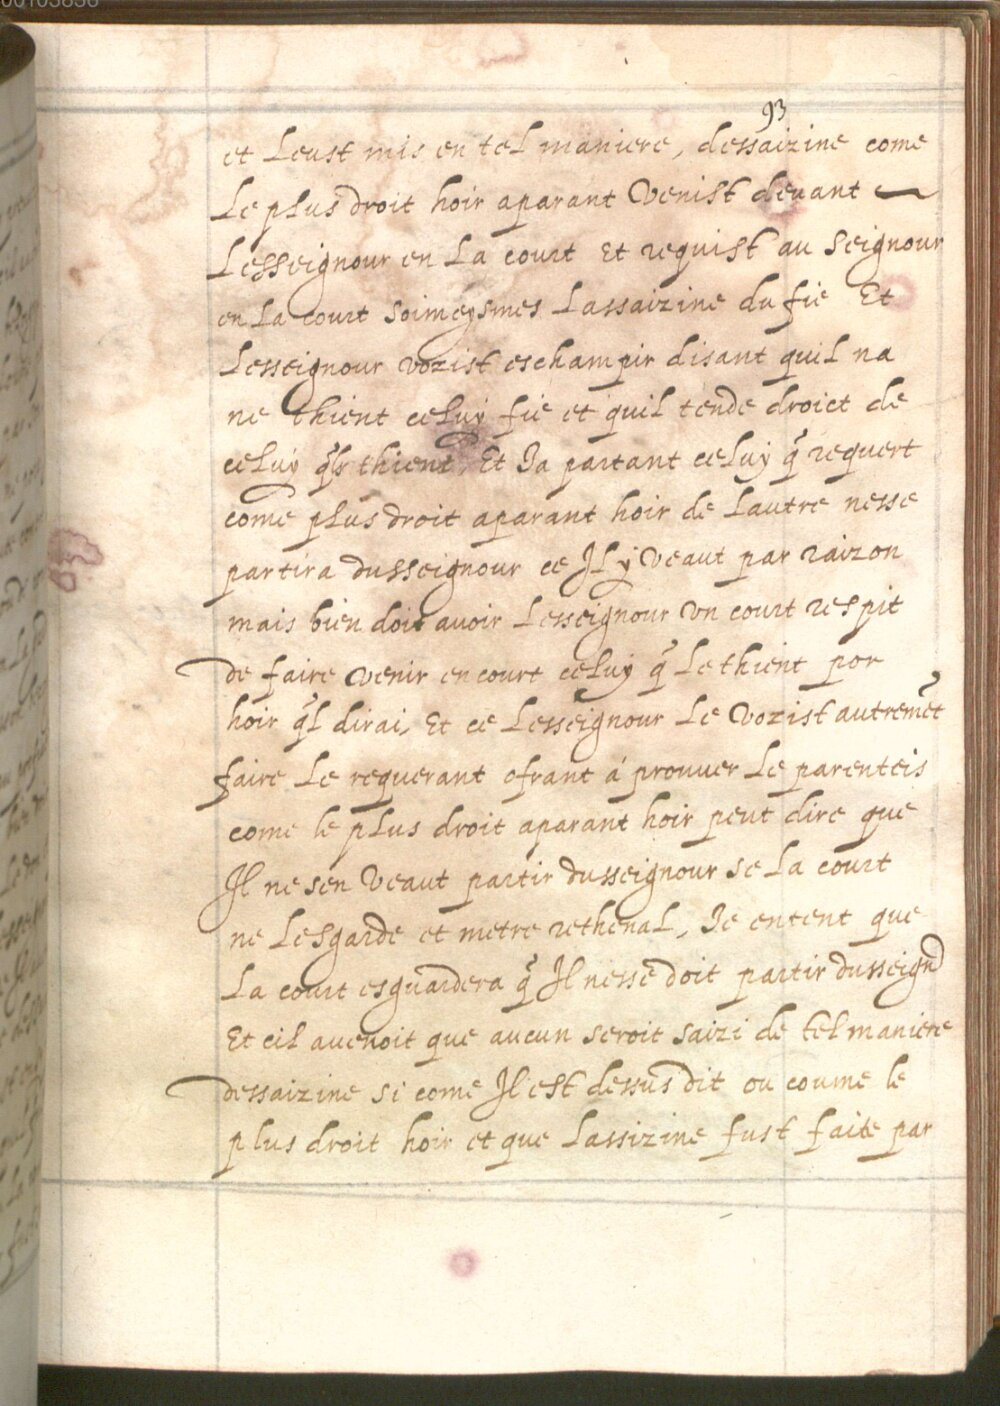 00103836
93
et Leust mis en tel maniere, dessaizine come
Le plus droit hoir aparant Venist devant
Lesseignour en La court Et requist au Seignour
en La court Soimeysmes Lassaizine du fie Et
Lesseignour vozist eschampir disant quil na
ne thient celuy fie et quil tende droict de
celuy thient, Et Ja partant celuy q̃ requert
come plus droit aparant hoir de Lautre nesse
partira dusseignour ce Jl y Veaut par raizon
mais bien doit avoir Lesseignour Vn court respit
de faire venir en court celuy q̃ Le thient por
hoir q̃l dirai, Et ce Lesseignour Le Vozist autremẽt
faire Le requerant ofrant á prouuer Le parenteis
come le plus droit aparant hoir peut dire que
Jl ne sen Veaut partir dusseignour se La court
ne Lesgarde et metre rethenal, Je entent que
La court esguardera q̃ Jl nesse doit partir dusseign̄
Et cil auenoit que aucun seroit saizi de tel maniere
dessaizine si come Jl est dessus dit ou coume le
plus droit hoir et que Lassizine fust faite par